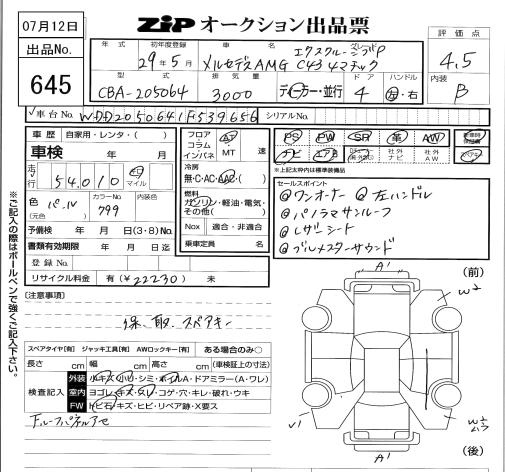 07月12日
ZIP オークション出品票
出品No.
645
年式 初年度登録 車名 グレード
29年5月 メルセデスAMG C43 4マチック エクスクルーシブP
型式 排気量 ドア ハンドル
CBA-205064 3000 ディーラー・並行 4 左・右
評価点
4.5
内装
B
車台No. WDD2050641F539656 シリアルNo.
車歴 自家用・レンタ( )
車検 年 月
走行 54,010 キロ マイル
色 (元色) パ.IV カラーNo. 799 内装色
予備検 年 月 日(3・8)No.
書類有効期限 年 月 日迄
登録No.
リサイクル料金 有(¥22230) 未
フロア コラム インパネ AT MT 速
冷房 無・C・AC・AAC( )
燃料 ガソリン・軽油・電気・その他( )
Nox 適合・非適合
乗車定員 名
PS PW SR 革 AW
ナビ エアB 社外ナビ 社外AW スペアキー
※上記太枠内は標準装備品
セールスポイント
@ワンオーナー @左ハンドル
@パノラマサンルーフ
@レザーシート
@ブルメスターサウンド
※ご記入の際はボールペンで強くご記入下さい。
[注意事項]
保、取、スペアキー
スペアタイヤ[有] ジャッキ工具[有] AWロックキー[有] ある場合のみ○
長さ cm 幅 cm 高さ cm (車検証上の寸法)
検査記入
外装 小キズ・小凹・シミ・ホイルA・ドアミラー(A・ワレ)
室内 ヨゴレ・キズ・スレ・コゲ・穴・キレ・破れ・ウキ
FW トビ石・キズ・ヒビ・リペア跡・X要ス
(前)
A1
W2
V1
W2
A1
(後)